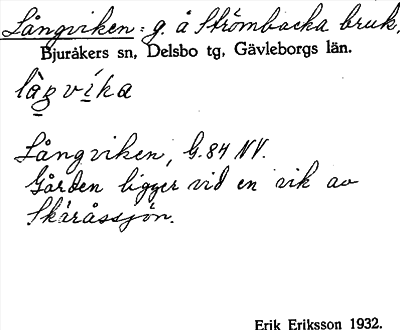 Långviken: g. å Strömbacka bruk,
Bjuråkers sn, Delsbo tg, Gävleborgs län.
lå̀gvíka
Långviken, G. 84 NV.
Gården ligger vid en vik av
Skåråssjön.
Erik Eriksson 1932.